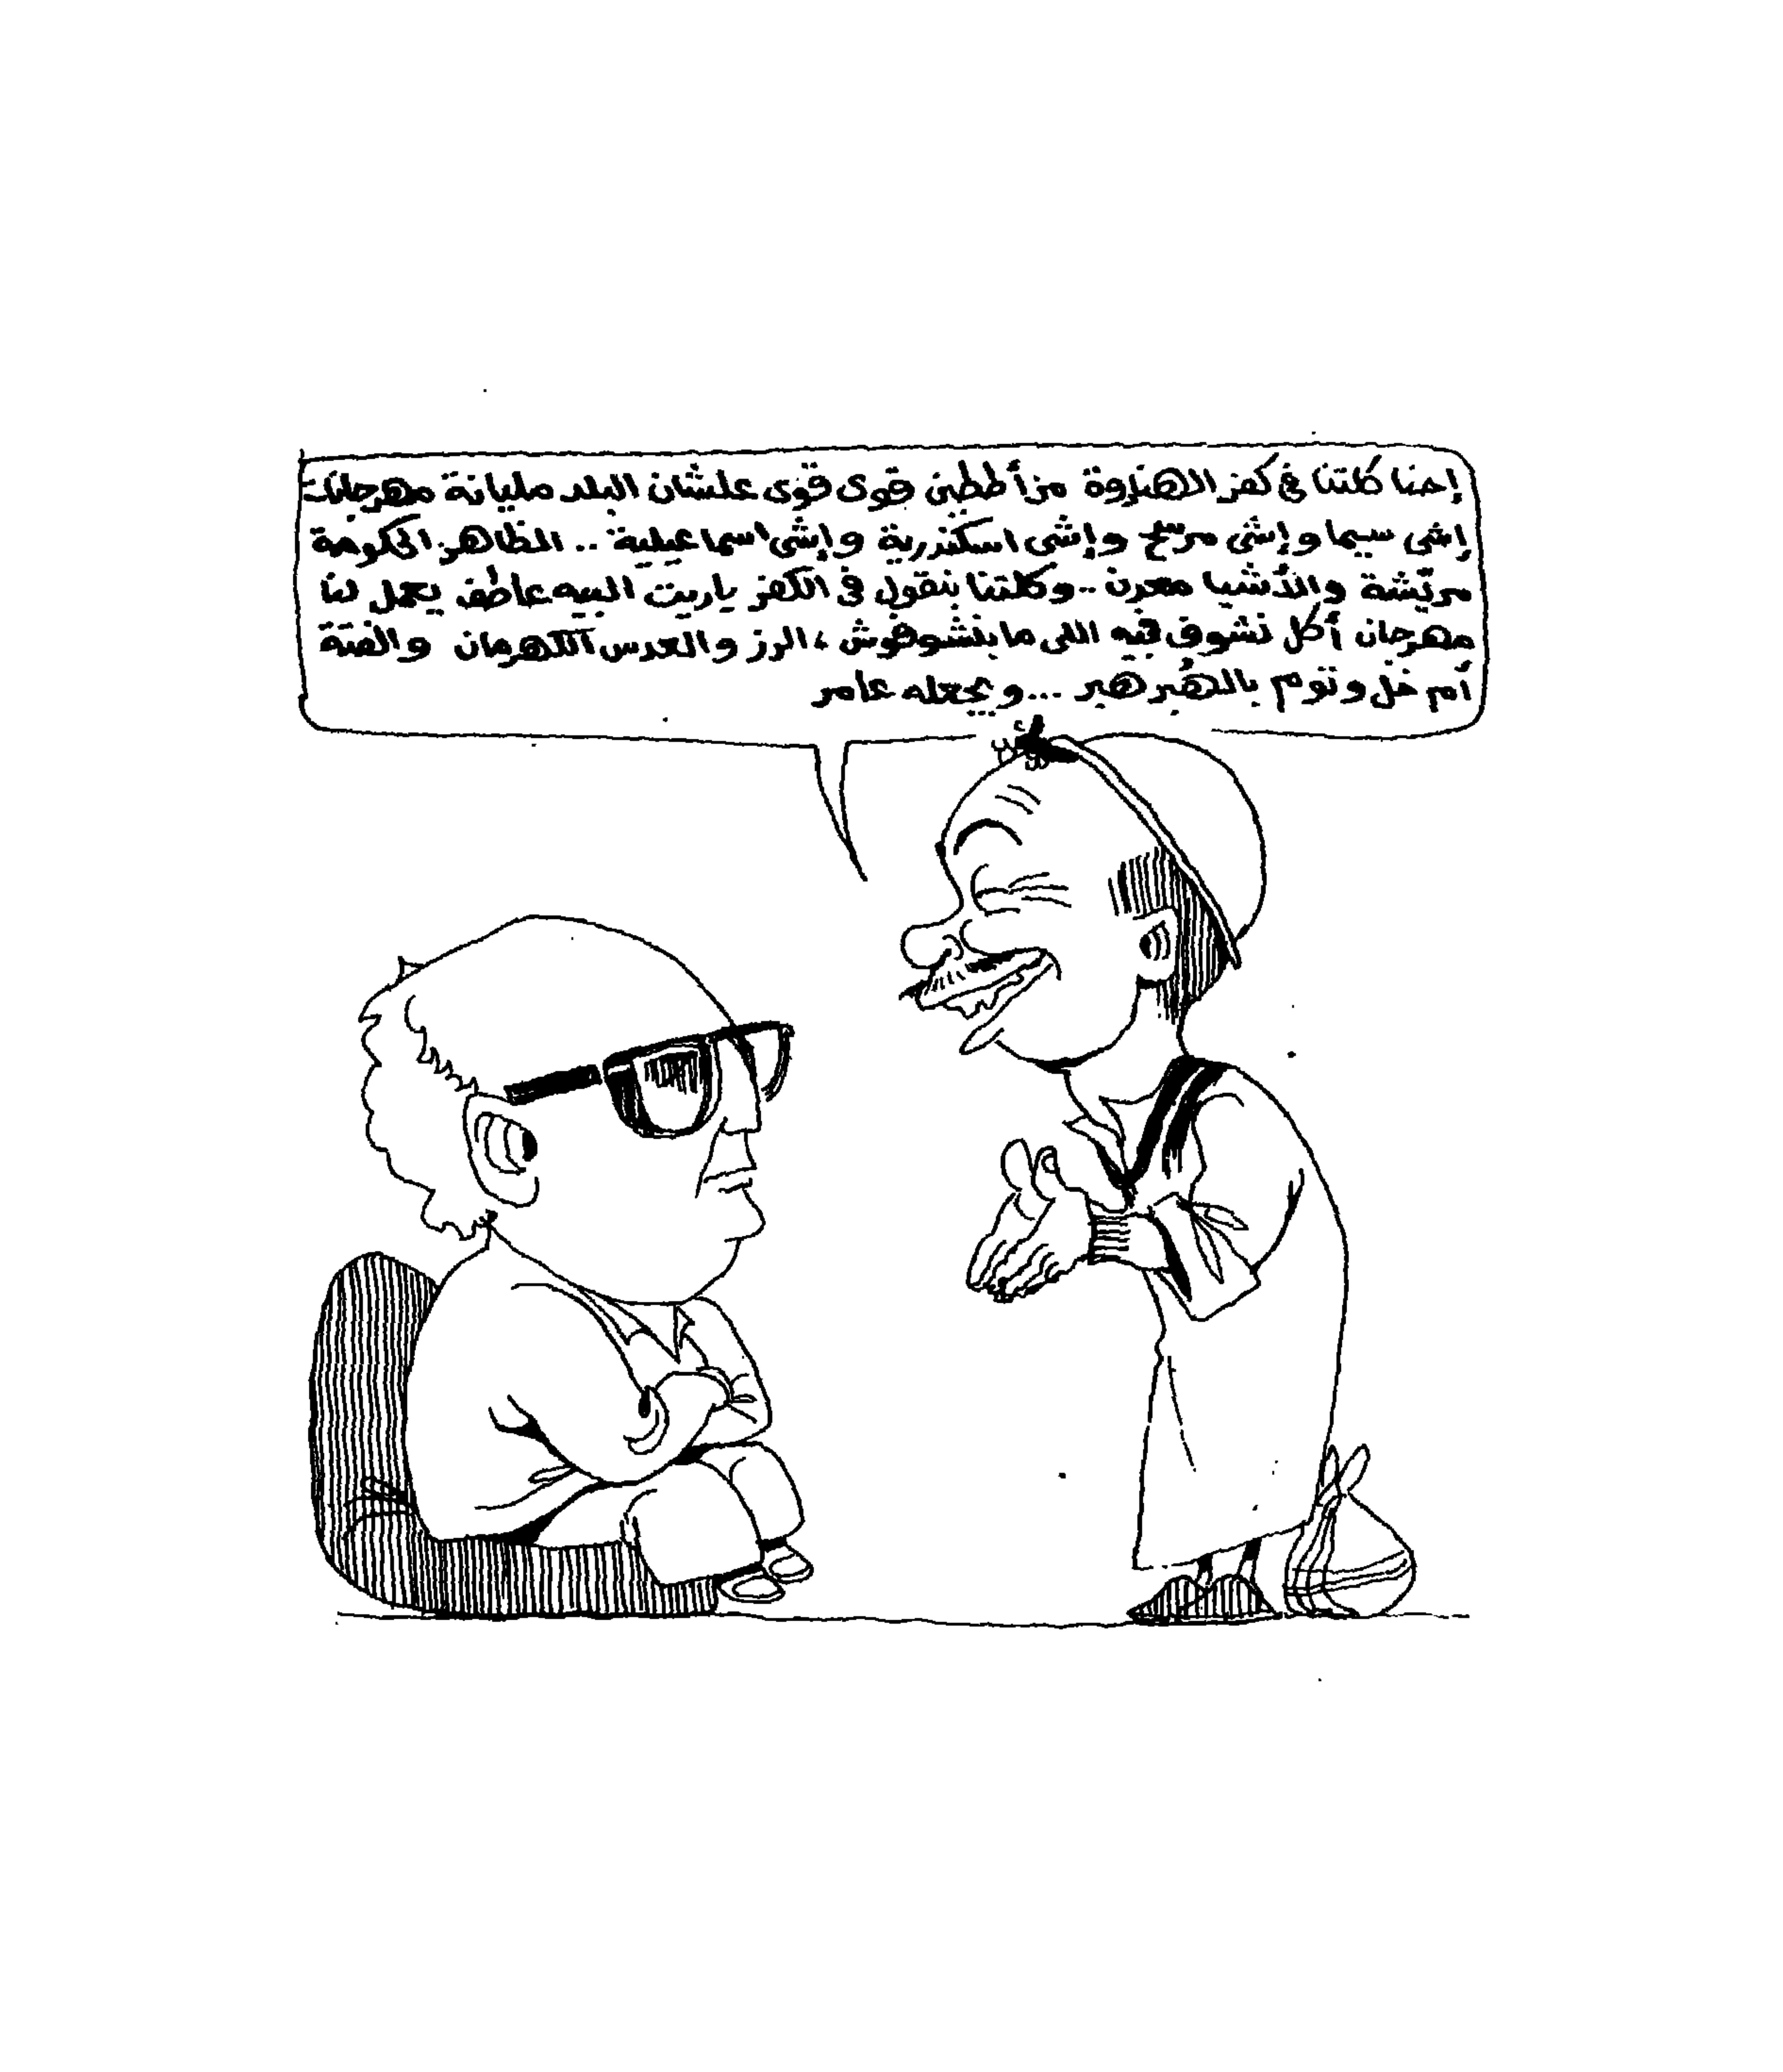 إحنا كلتنا فى كفر الهنادوة مزأططين قوى قوى علشان البلد مليانة مهرجانات
إشى سيما وإشى مسرح وإشى اسكندرية وإشى اسماعيلية .. الظاهر الحكومة
مريّشة والأشيا معدن .. وكلتنا بنقول فى الكفر ياريت البيه عاطف يعمل لنا
مهرجان أكل نشوف فيه اللى مابنشوفوش ، الرز والعدس الكهرمان والفتة
أم خل وتوم بالهُبر هبر ... ويجعله عامر